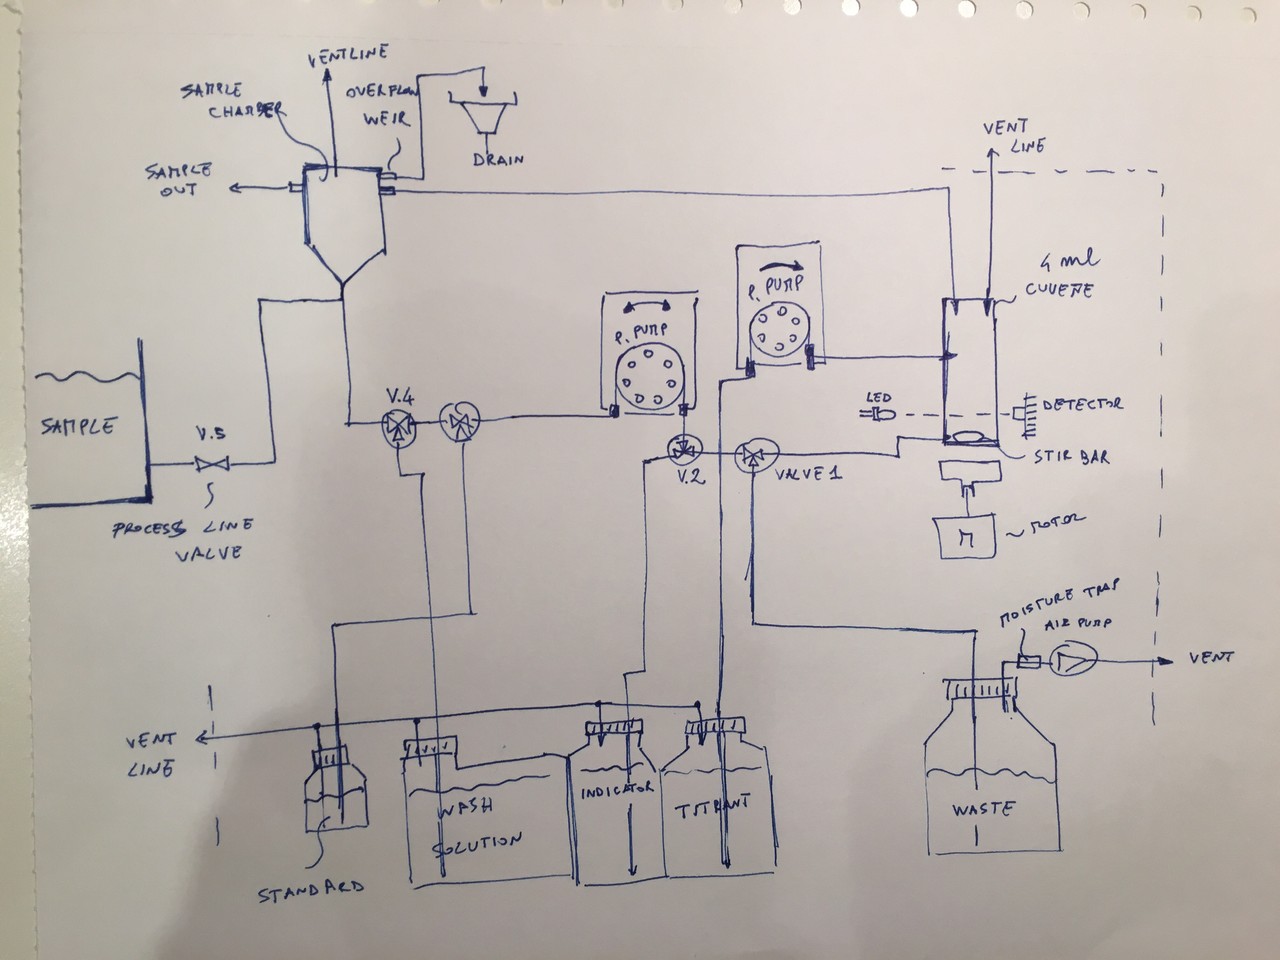 VENTLINE
SAMPLE
CHAMBER
OVERFLOW
WEIR
DRAIN
SAMPLE
OUT
VENT
LINE
4 ml
CUVETTE
P. PUMP
P. PUMP
V.4
LED
DETECTOR
SAMPLE
V.5
STIR BAR
V.2
VALVE 1
PROCESS LINE
VALVE
M
MOTOR
MOISTURE TRAP
AIR PUMP
VENT
VENT
LINE
INDICATOR
WASH
SOLUTION
TITRANT
WASTE
STANDARD